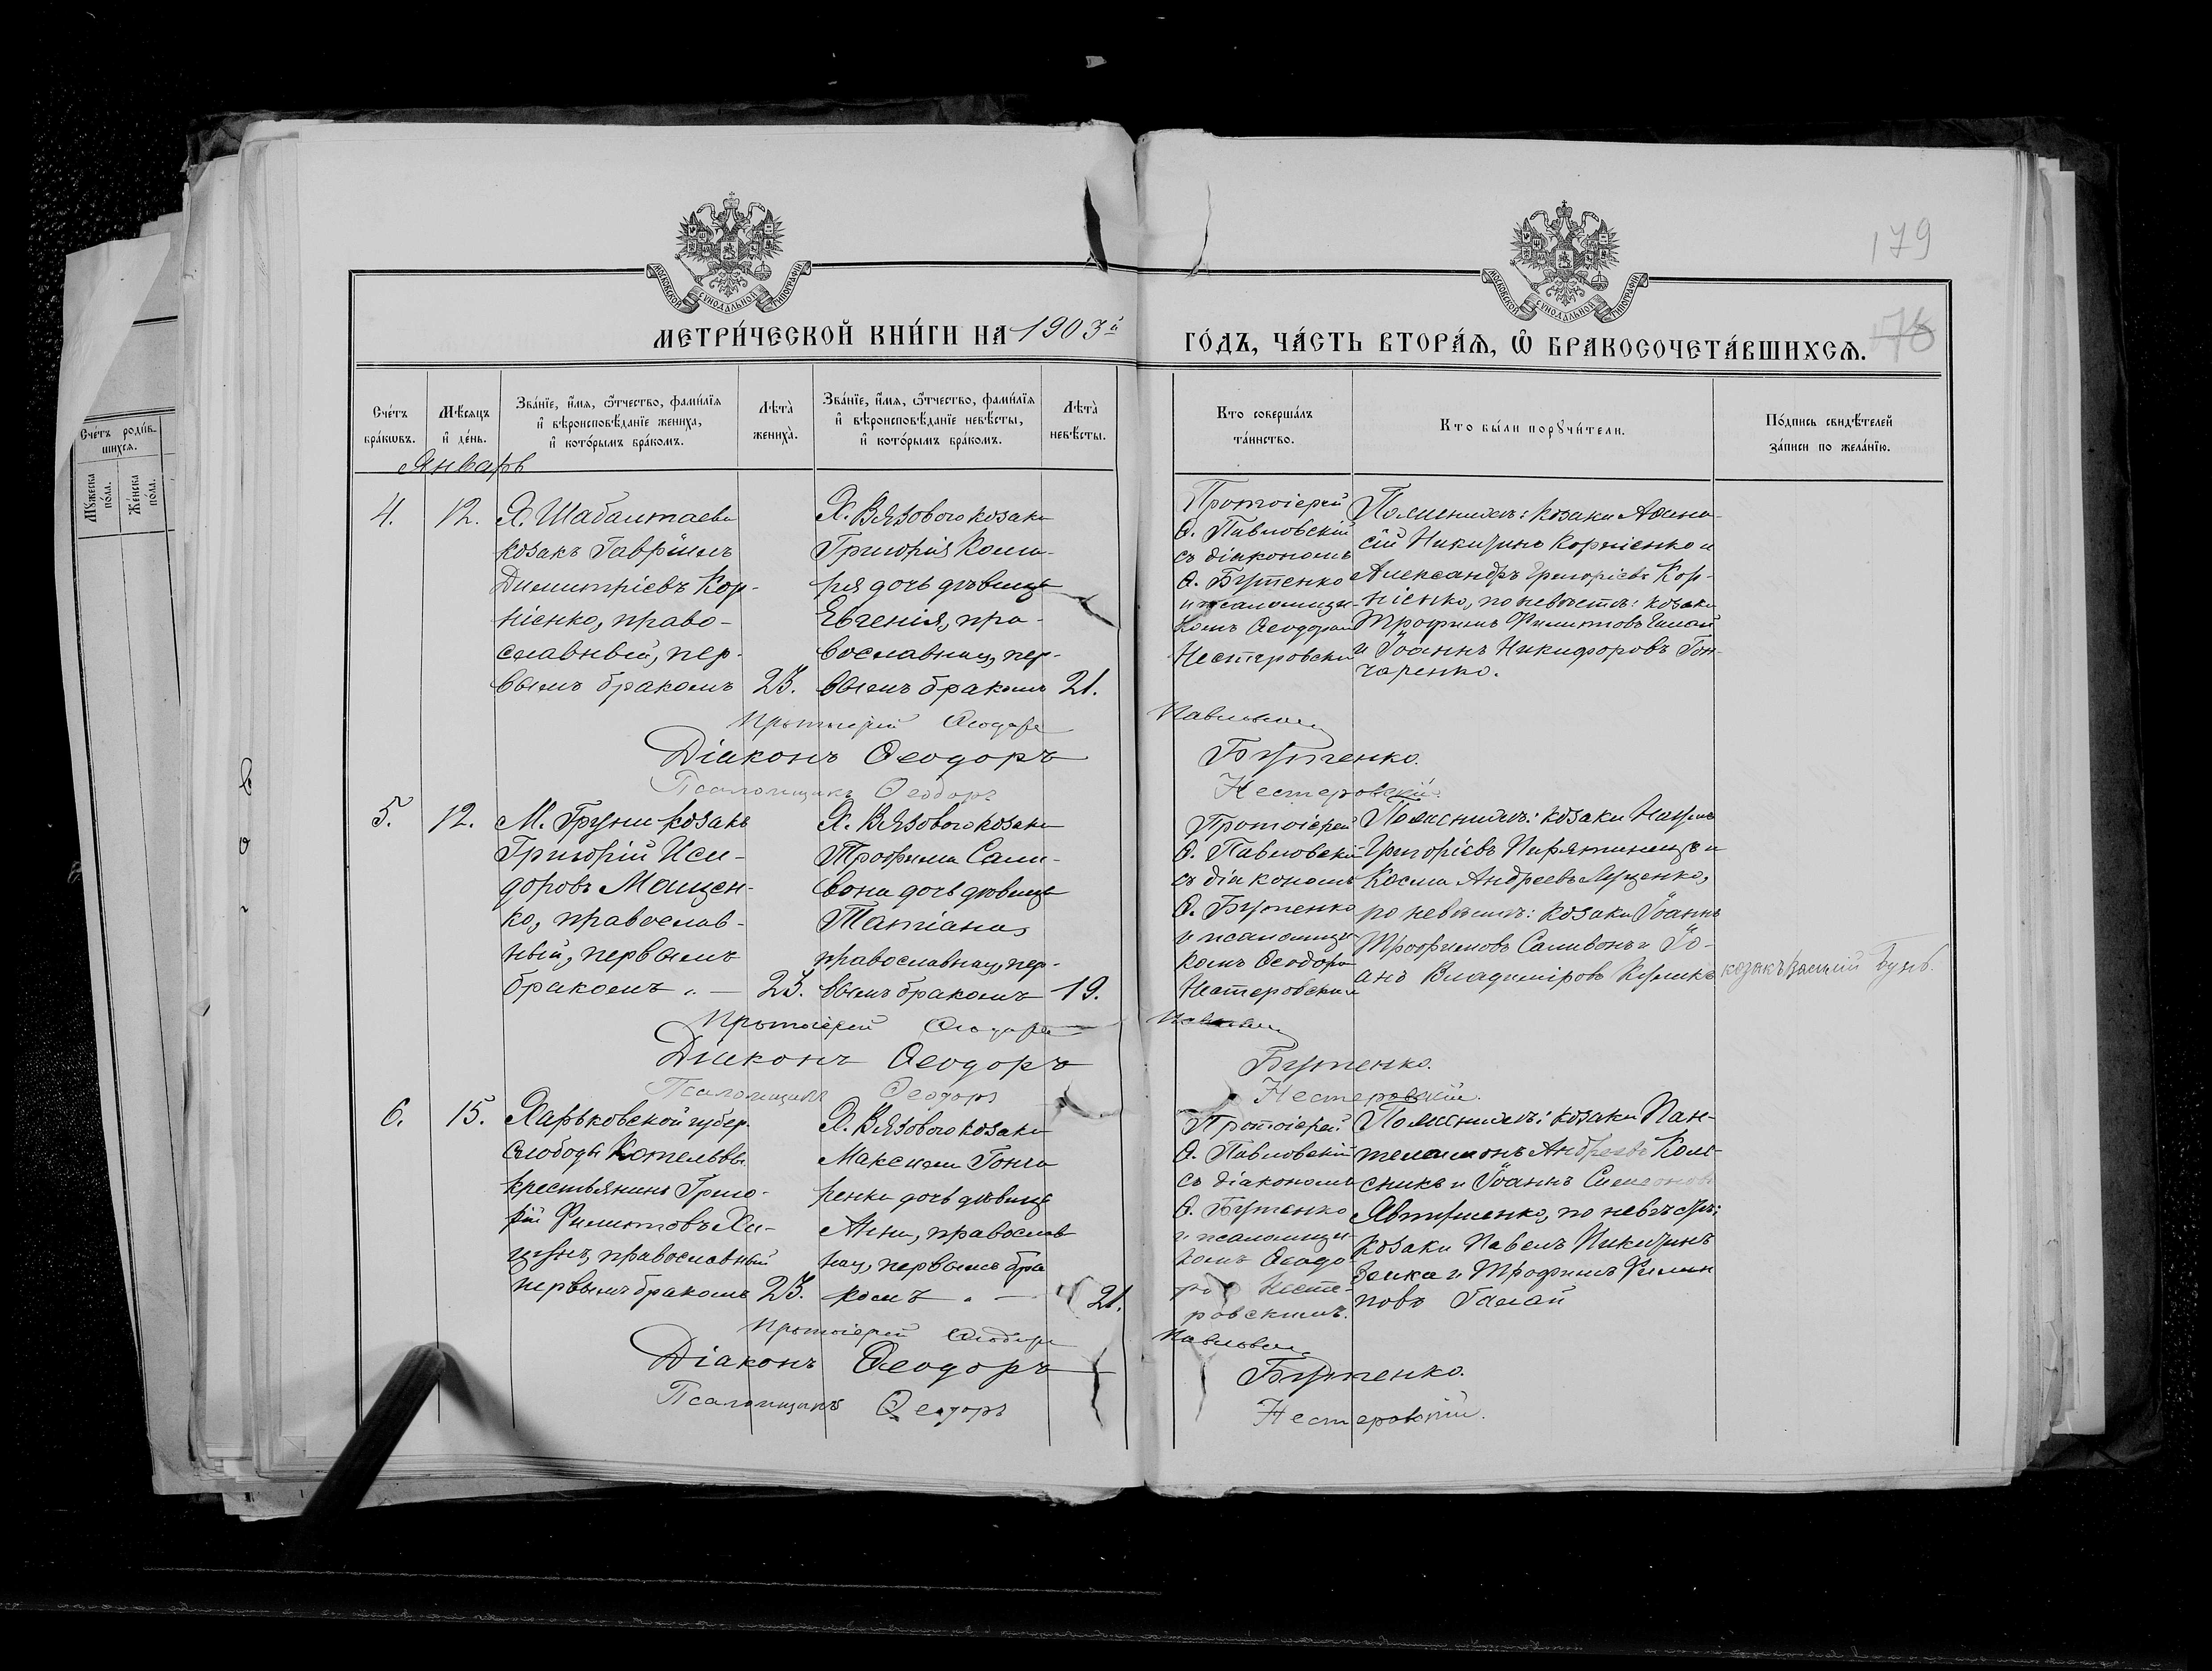 МОСКОВСКОЙ СѴНОДАЛЬНОЙ ТИПОГРАФІИ
МОСКОВСКОЙ СѴНОДАЛЬНОЙ ТИПОГРАФІИ
179
МЕТРИ́ЧЕСКОЙ КНИ́ГИ НА 1903й
ГО́ДЪ, ЧА́СТЬ ВТОРА́Ѧ, Ѽ БРАКОСОЧЕТА́ВШИХСѦ.
Сче́тъ роди́в-
шихсѧ.
Мꙋ́жеска по́ла.
Же́нска по́ла.
Сче́тъ
бра́кѡвъ.
Мѣ́сѧцъ
и҆ де́нь.
Зва́нїе, и҆́мѧ, ѻ҆́тчество, фами́лїѧ
и҆ вѣроисповѣ́данїе жениха̀,
и҆ кото́рымъ бра́комъ.
Лѣта̀
жениха̀.
Зва́нїе, и҆́мѧ, ѻ҆́тчество, фами́лїѧ
и҆ вѣроисповѣ́данїе невѣ́сты,
и҆ кото́рымъ бра́комъ.
Лѣта̀
невѣ́сты.
Кто соверша́лъ
та́инство.
Кто бы́ли порꙋчи́тели.
По́дпись свидѣ́телей
за́писи по жела́нїю.
Январь
4.
12.
Х. Шабалтаева
козакъ Гавріилъ
Димитріевъ Кор-
ніенко, право-
славный, пер-
вымъ бракомъ
23.
Х. Вязового козака
Григорія
дочь дѣвица
Евгенія, пра-
вославная, пер-
вымъ бракомъ
21.
Протоіерей
Ѳ. Павловскій
съ діакономъ
Ѳ. Бутенко
и псаломщи-
комъ Ѳеодоромъ
Нестеровскимъ
По женихѣ: козаки Аѳана-
сій Никитинъ Корніенко и
Александръ Григоріевъ Кор-
ніенко, по невѣстѣ: козаки
Трофимъ Филиповъ Галай
и Іоаннъ Никифоровъ Гон-
чаренко.
Протоіерей Ѳеодоръ Павловскій
Діаконъ Ѳеодоръ Бутенко.
Псаломщикъ Ѳеодоръ Нестеровскій.
5.
12.
М. Груни козакъ
Григорій Иси-
доровъ Мощен-
ко, православ-
ный, первымъ
бракомъ
23.
Х. Вязового козака
Трофима Сали-
вона дочь дѣвица
Татіана,
православная, пер-
вымъ бракомъ
19.
Протоіерей
Ѳ. Павловскій
съ діакономъ
Ѳ. Бутенко
и псаломщи-
комъ Ѳеодоромъ
Нестеровскимъ
По женихѣ: козаки Наумъ
Григоріевъ Пирятинецъ и
Косма Андреевъ Луценко,
по невѣстѣ: козаки Іоаннъ
Трофимовъ Саливонъ и Іо-
анъ Владиміровъ Куликъ
козакъ Василій
Протоіерей Ѳеодоръ Павловскій
Діаконъ Ѳеодоръ Бутенко.
Псаломщикъ Ѳеодоръ Нестеровскій.
6.
15.
Харьковской губер.
слободы Котельвы
крестьянинъ Григо-
рій Филиповъ
православный
первымъ бракомъ
23.
Х. Вязового козака
Максима Гонча
ренка дочь дѣвица
Анна, православ
ная, первымъ бра
комъ
21.
Протоіерей
Ѳ. Павловскій
съ діакономъ
Ѳ. Бутенко
и псаломщи-
комъ Ѳеодо-
ро Несте-
ровскимъ.
По женихѣ: козаки Пан-
телеимонъ Андреевъ Коле-
сникъ и Іоаннъ Симеоновъ
Явтушенко, по невѣстѣ:
козаки Павелъ Никитинъ
Заика и Трофимъ Филип
повъ Галай
Протоіерей Ѳеодоръ Павловскій
Діаконъ Ѳеодоръ Бутенко.
Псаломщикъ Ѳеодоръ Нестеровскій.